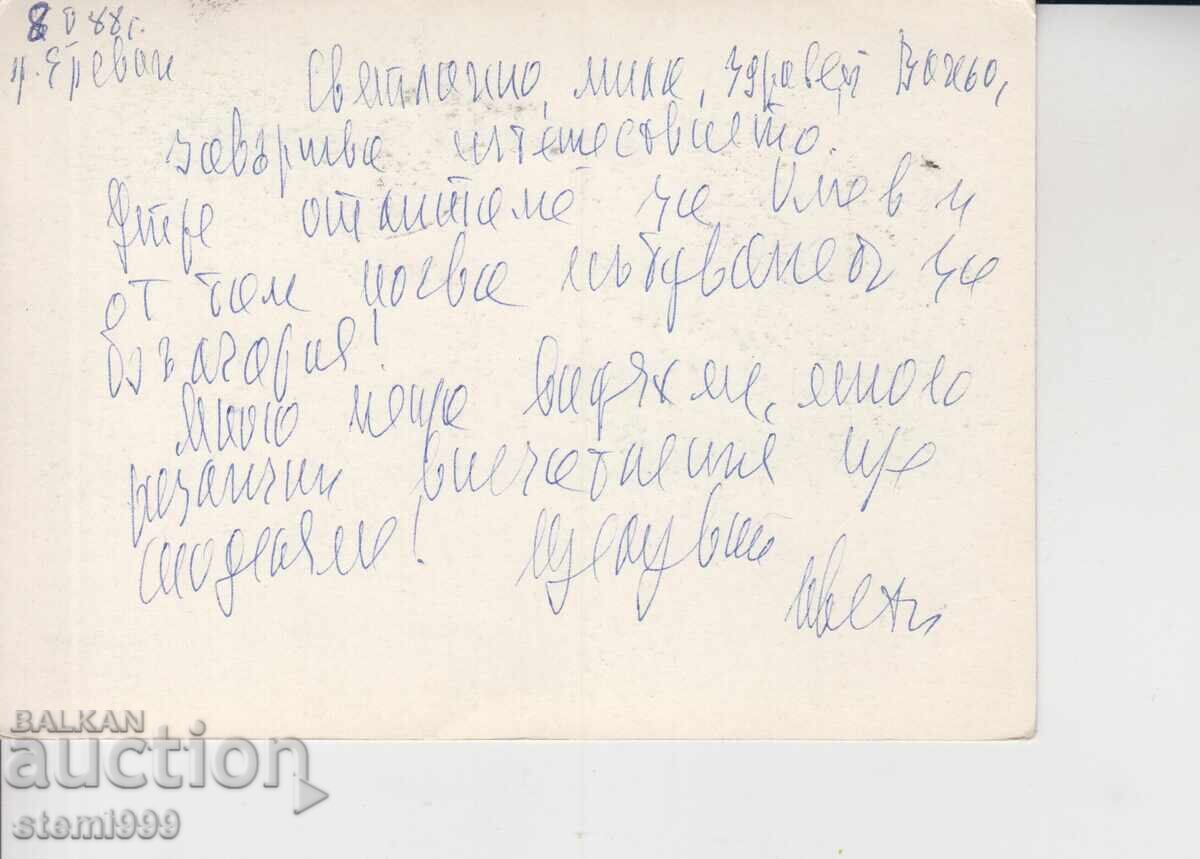 8 V 88 г.
гр. Ереван
Светланио, мила, здравей Ваньо,
завършва пътешествието.
Утре отлитаме за Киев и
от там почва пътуването за
България!
Много неща видяхме, много
различни впечатления ще
споделяме! Целувки
BALKAN
auction
stemi999